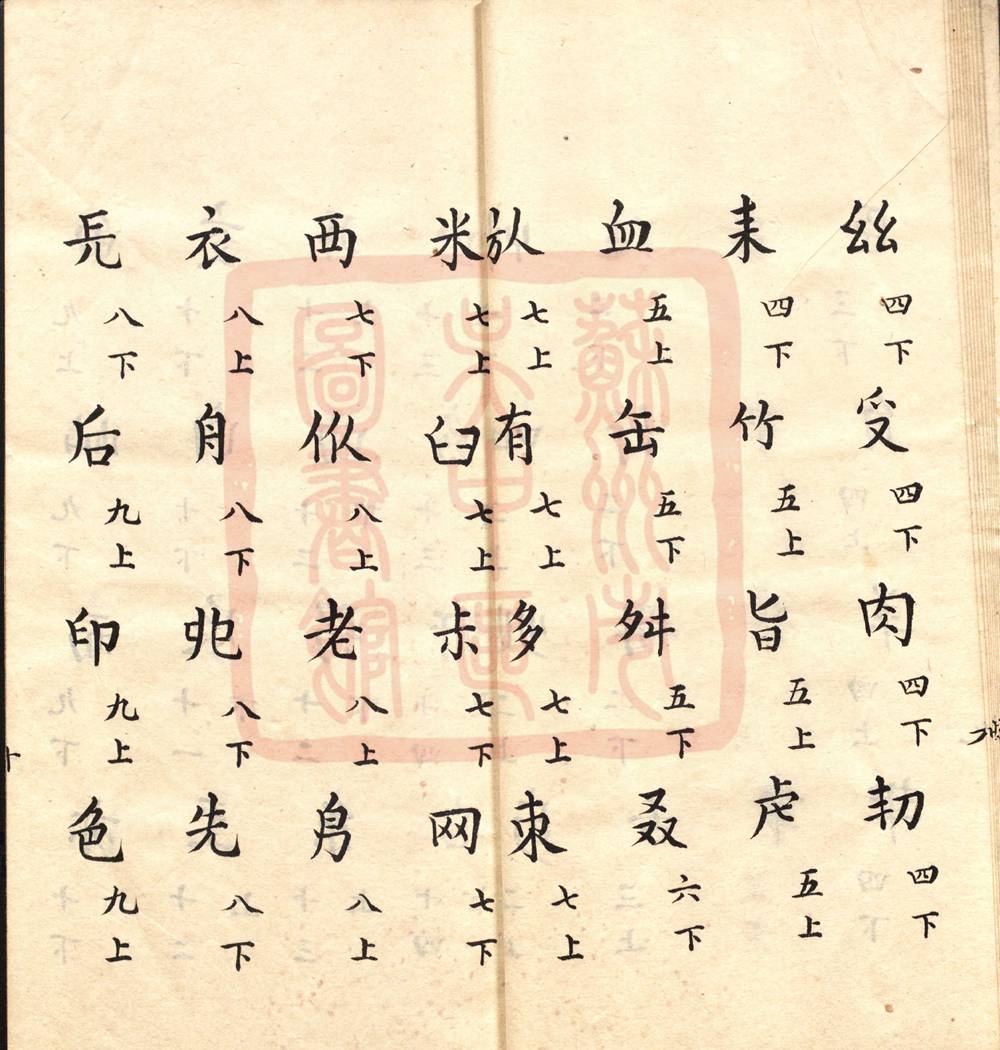 𢆶 四下 𠬪 四下 肉 四下 㓞 四下
耒 四下 竹 五上 旨 五上 虍 五上
血 五上 缶 五下 舛 五下 叒 六下
㫃 七上 有 七上 多 七上 朿 七上
米 七上 臼 七上 尗 七下 网 七下
襾 七下 㐺 八上 老 八上 㐆 八上
衣 八上 舟 八下 𠑹 八下 先 八下
八下 后 九上 印 九上 色 九上
蘇州市
圖書館